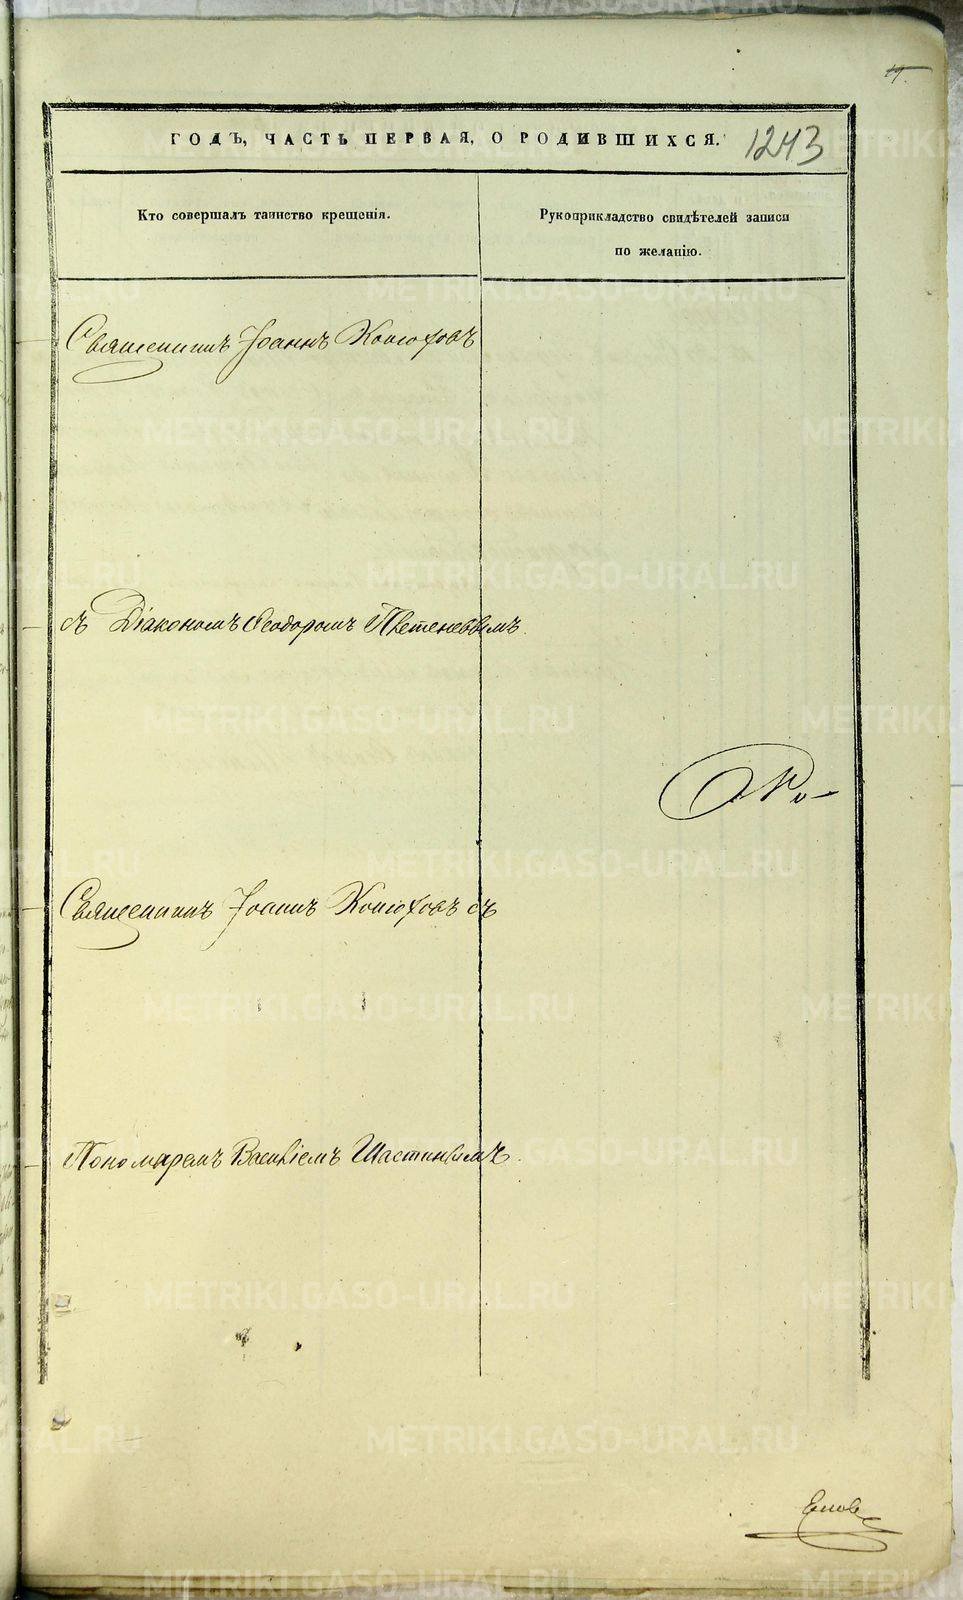 ГОДЪ, ЧАСТЬ ПЕРВАЯ, О РОДИВШИХСЯ. 1243
Кто совершалъ таинство крещенія.
Рукоприкладство свидѣтелей записи
по желанію.
Священникъ Іоаннъ Конюховъ
съ Діакономъ Ѳеодоромъ
Священникъ Іоаннъ Конюховъ съ
Пономаремъ Василіемъ Шастинымъ.
METRIKI.GASO-URAL.RU